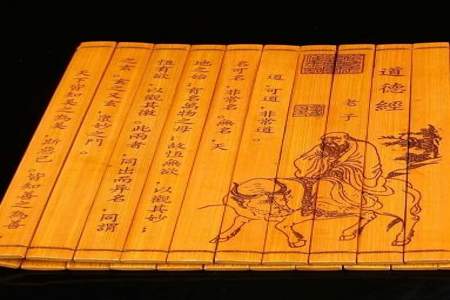 道德經
老子
道。可道。非常道。
名可名。非常名。無名。天
地之始。有名萬物之母。故恒無欲。以觀其妙。
恒有欲。以觀其徼。此兩者。同出而異名。同謂
之玄。玄之又玄。眾妙之門。
天下皆知美之為美。斯惡已。皆知善之為善